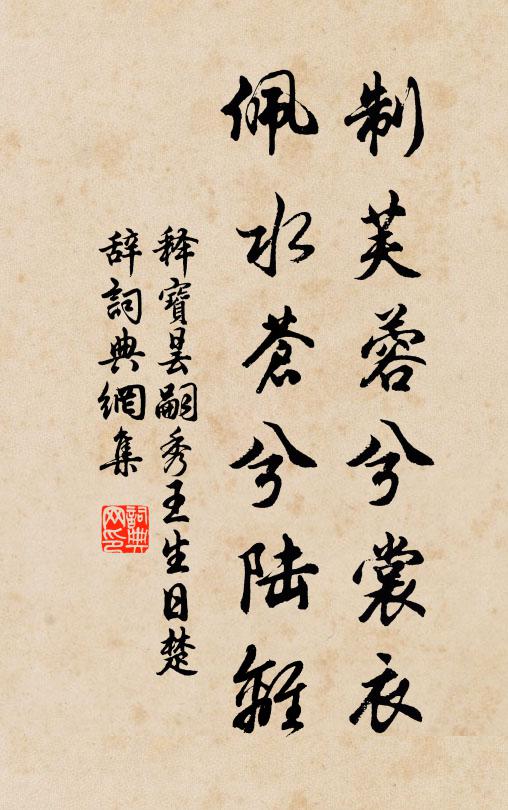 制芙蓉兮裳衣
佩水苍兮陆离
释寶昙嗣秀王生日楚
辞詞典網集
詞典
网印